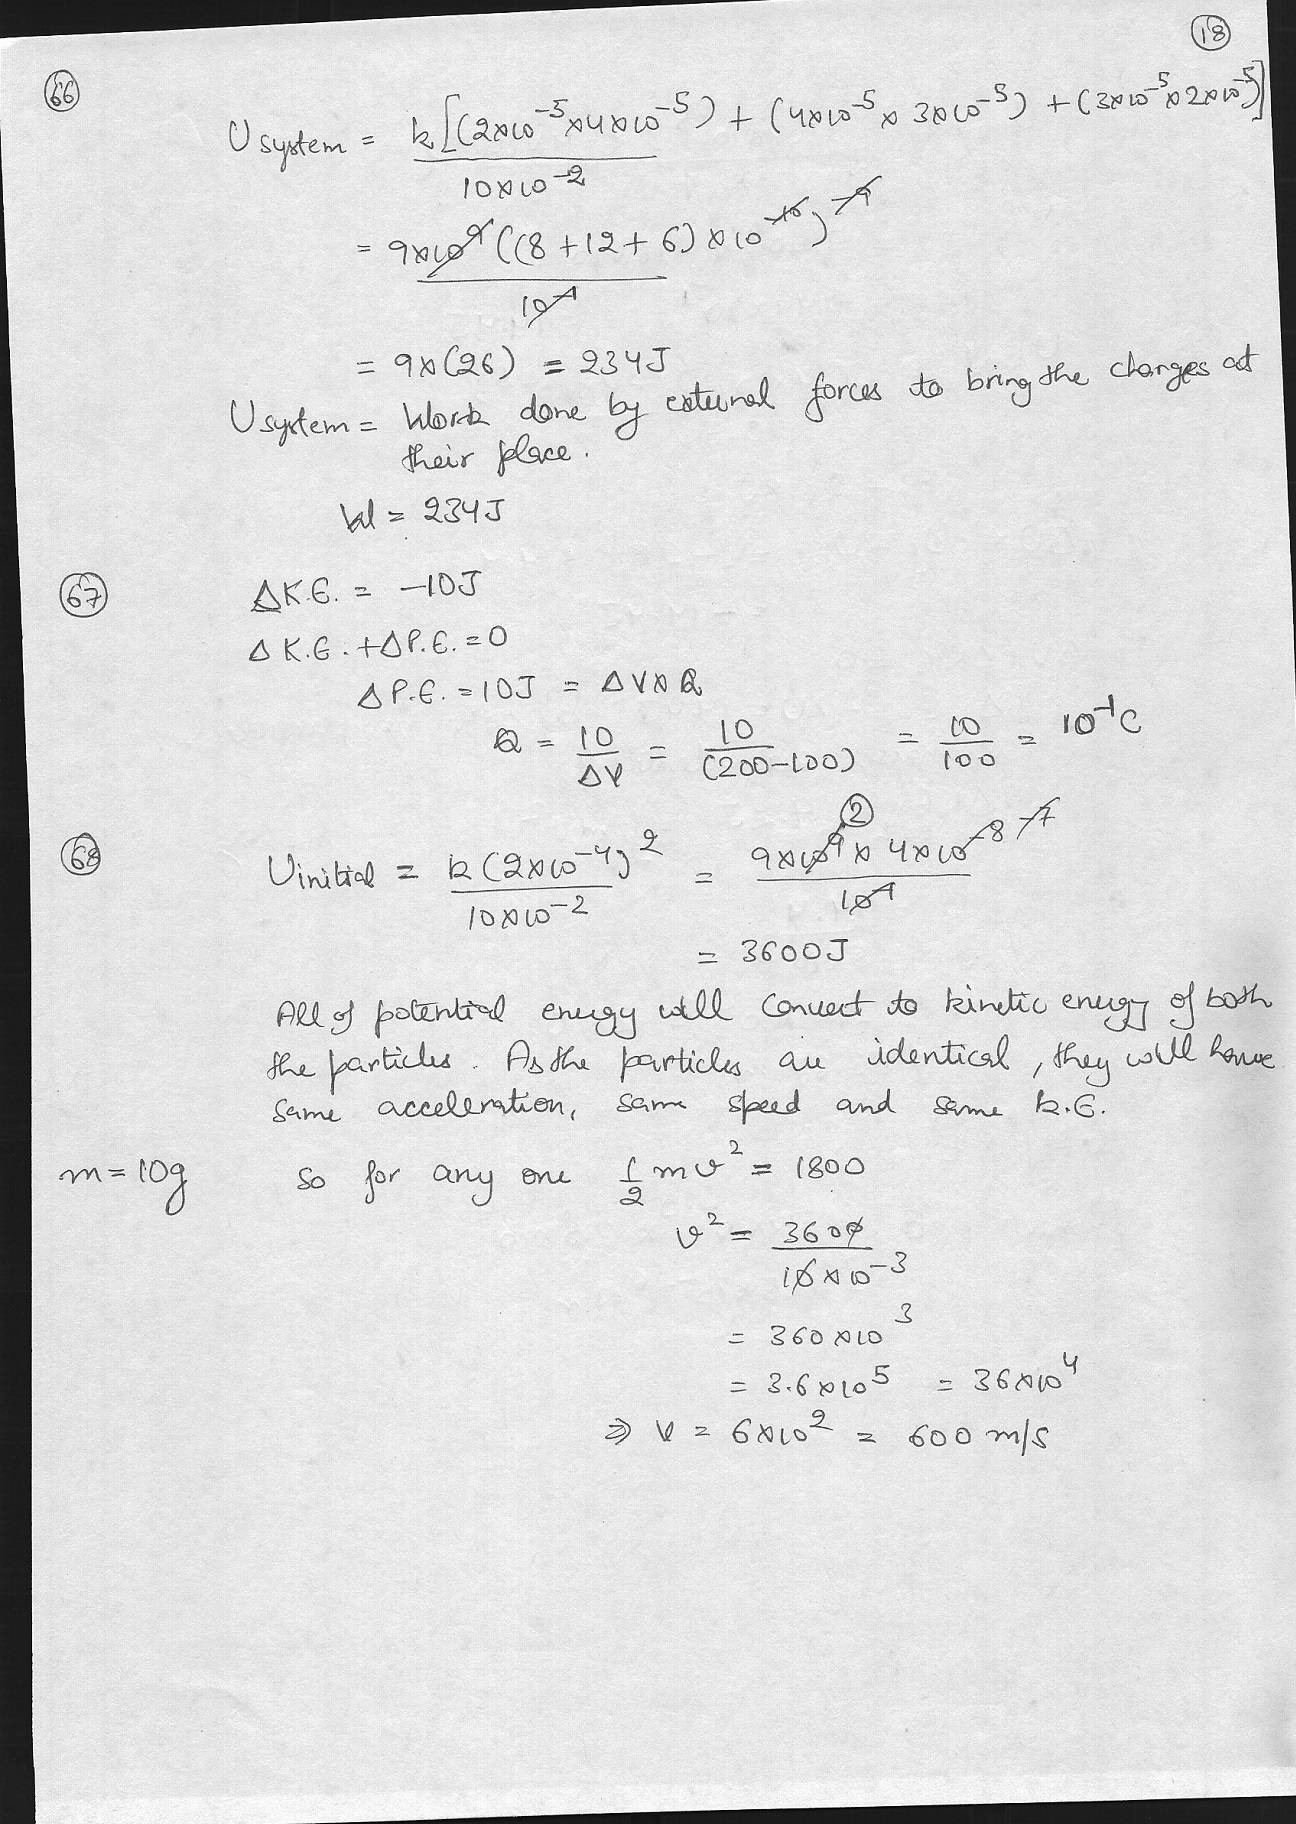 18
66
U system = k[(2×10⁻⁵×4×10⁻⁵) + (4×10⁻⁵ × 3×10⁻⁵) + (3×10⁻⁵×2×10⁻⁵)]
10×10⁻²
= 9×10⁹ ((8+12+6)×10⁻¹⁰) ⁻⁹
10⁻¹
= 9×(26) = 234J
U system = Work done by external forces to bring the charges at
their place.
W = 234J
67
ΔK.E. = -10J
ΔK.E. + ΔP.E. = 0
ΔP.E. = 10J = ΔV×Q
Q = 10/ΔV = 10/(200-100) = 10/100 = 10⁻¹C
68
U initial = k(2×10⁻⁴)²/10×10⁻² = 9×10⁹ ② × 4×10⁻⁸ ⁻⁷/10⁻¹
= 3600J
All of potential energy will convert to kinetic energy of both
the particles. As the particles are identical, they will have
same acceleration, same speed and same k.E.
m = 10g so for any one 1/2 mv² = 1800
v² = 3600/10×10⁻³
= 360×10³
= 3.6×10⁵ = 36×10⁴
⇒ V = 6×10² = 600 m/s